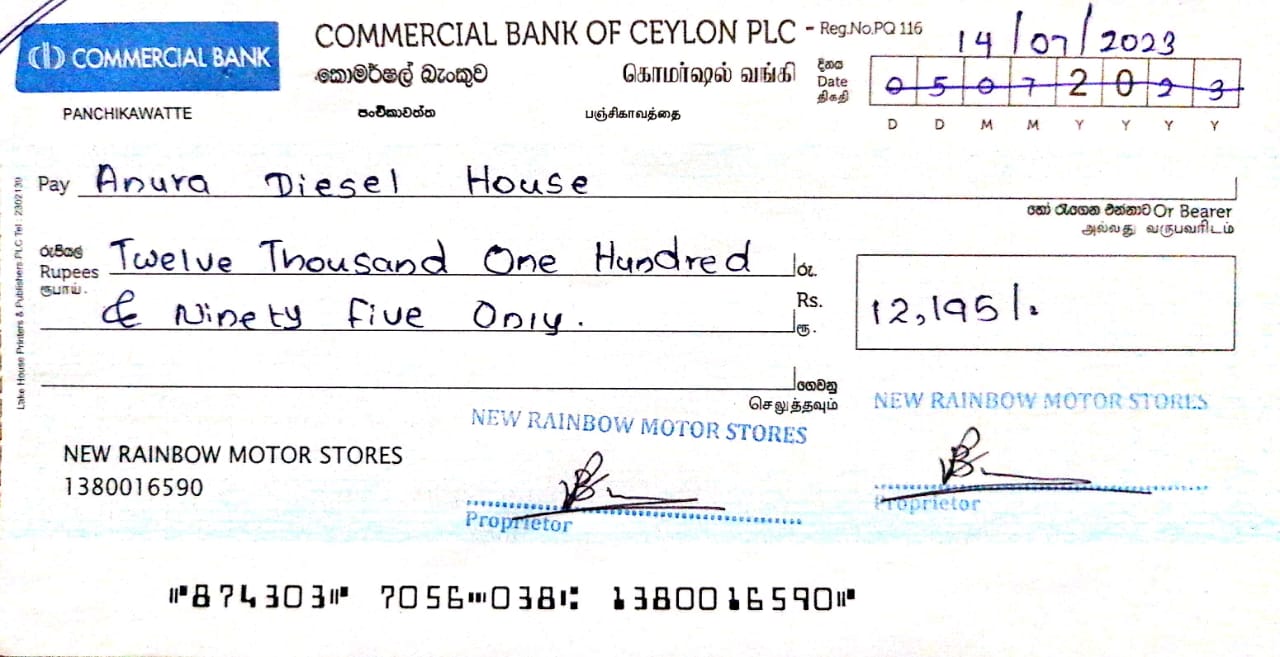 COMMERCIAL BANK
COMMERCIAL BANK OF CEYLON PLC - Reg.No.PQ 116
කොමර්ෂල් බැංකුව கொமர்ஷல் வங்கி
PANCHIKAWATTE පංචිකාවත්ත பஞ்சிகாவத்தை
14/07/2023
දිනය
Date 0 5 0 7 2 0 2 3
திகதி
D D M M Y Y Y Y
Pay Anura Diesel House
හෝ රැගෙන එන්නාට Or Bearer
அல்லது வருபவரிடம்
රුපියල්
Rupees Twelve Thousand One Hundred රු.
ரூபாய்.
& Ninety Five Only. Rs. 12,195/.
ரூ.
ගෙවනු
செலுத்தவும்
Lake House Printers & Publishers PLC Tel : 2302130
NEW RAINBOW MOTOR STORES
NEW RAINBOW MOTOR STORES
NEW RAINBOW MOTOR STORES
1380016590
Proprietor
Proprietor
⑈874303⑈ 7056⑉038⑆ 1380016590⑈